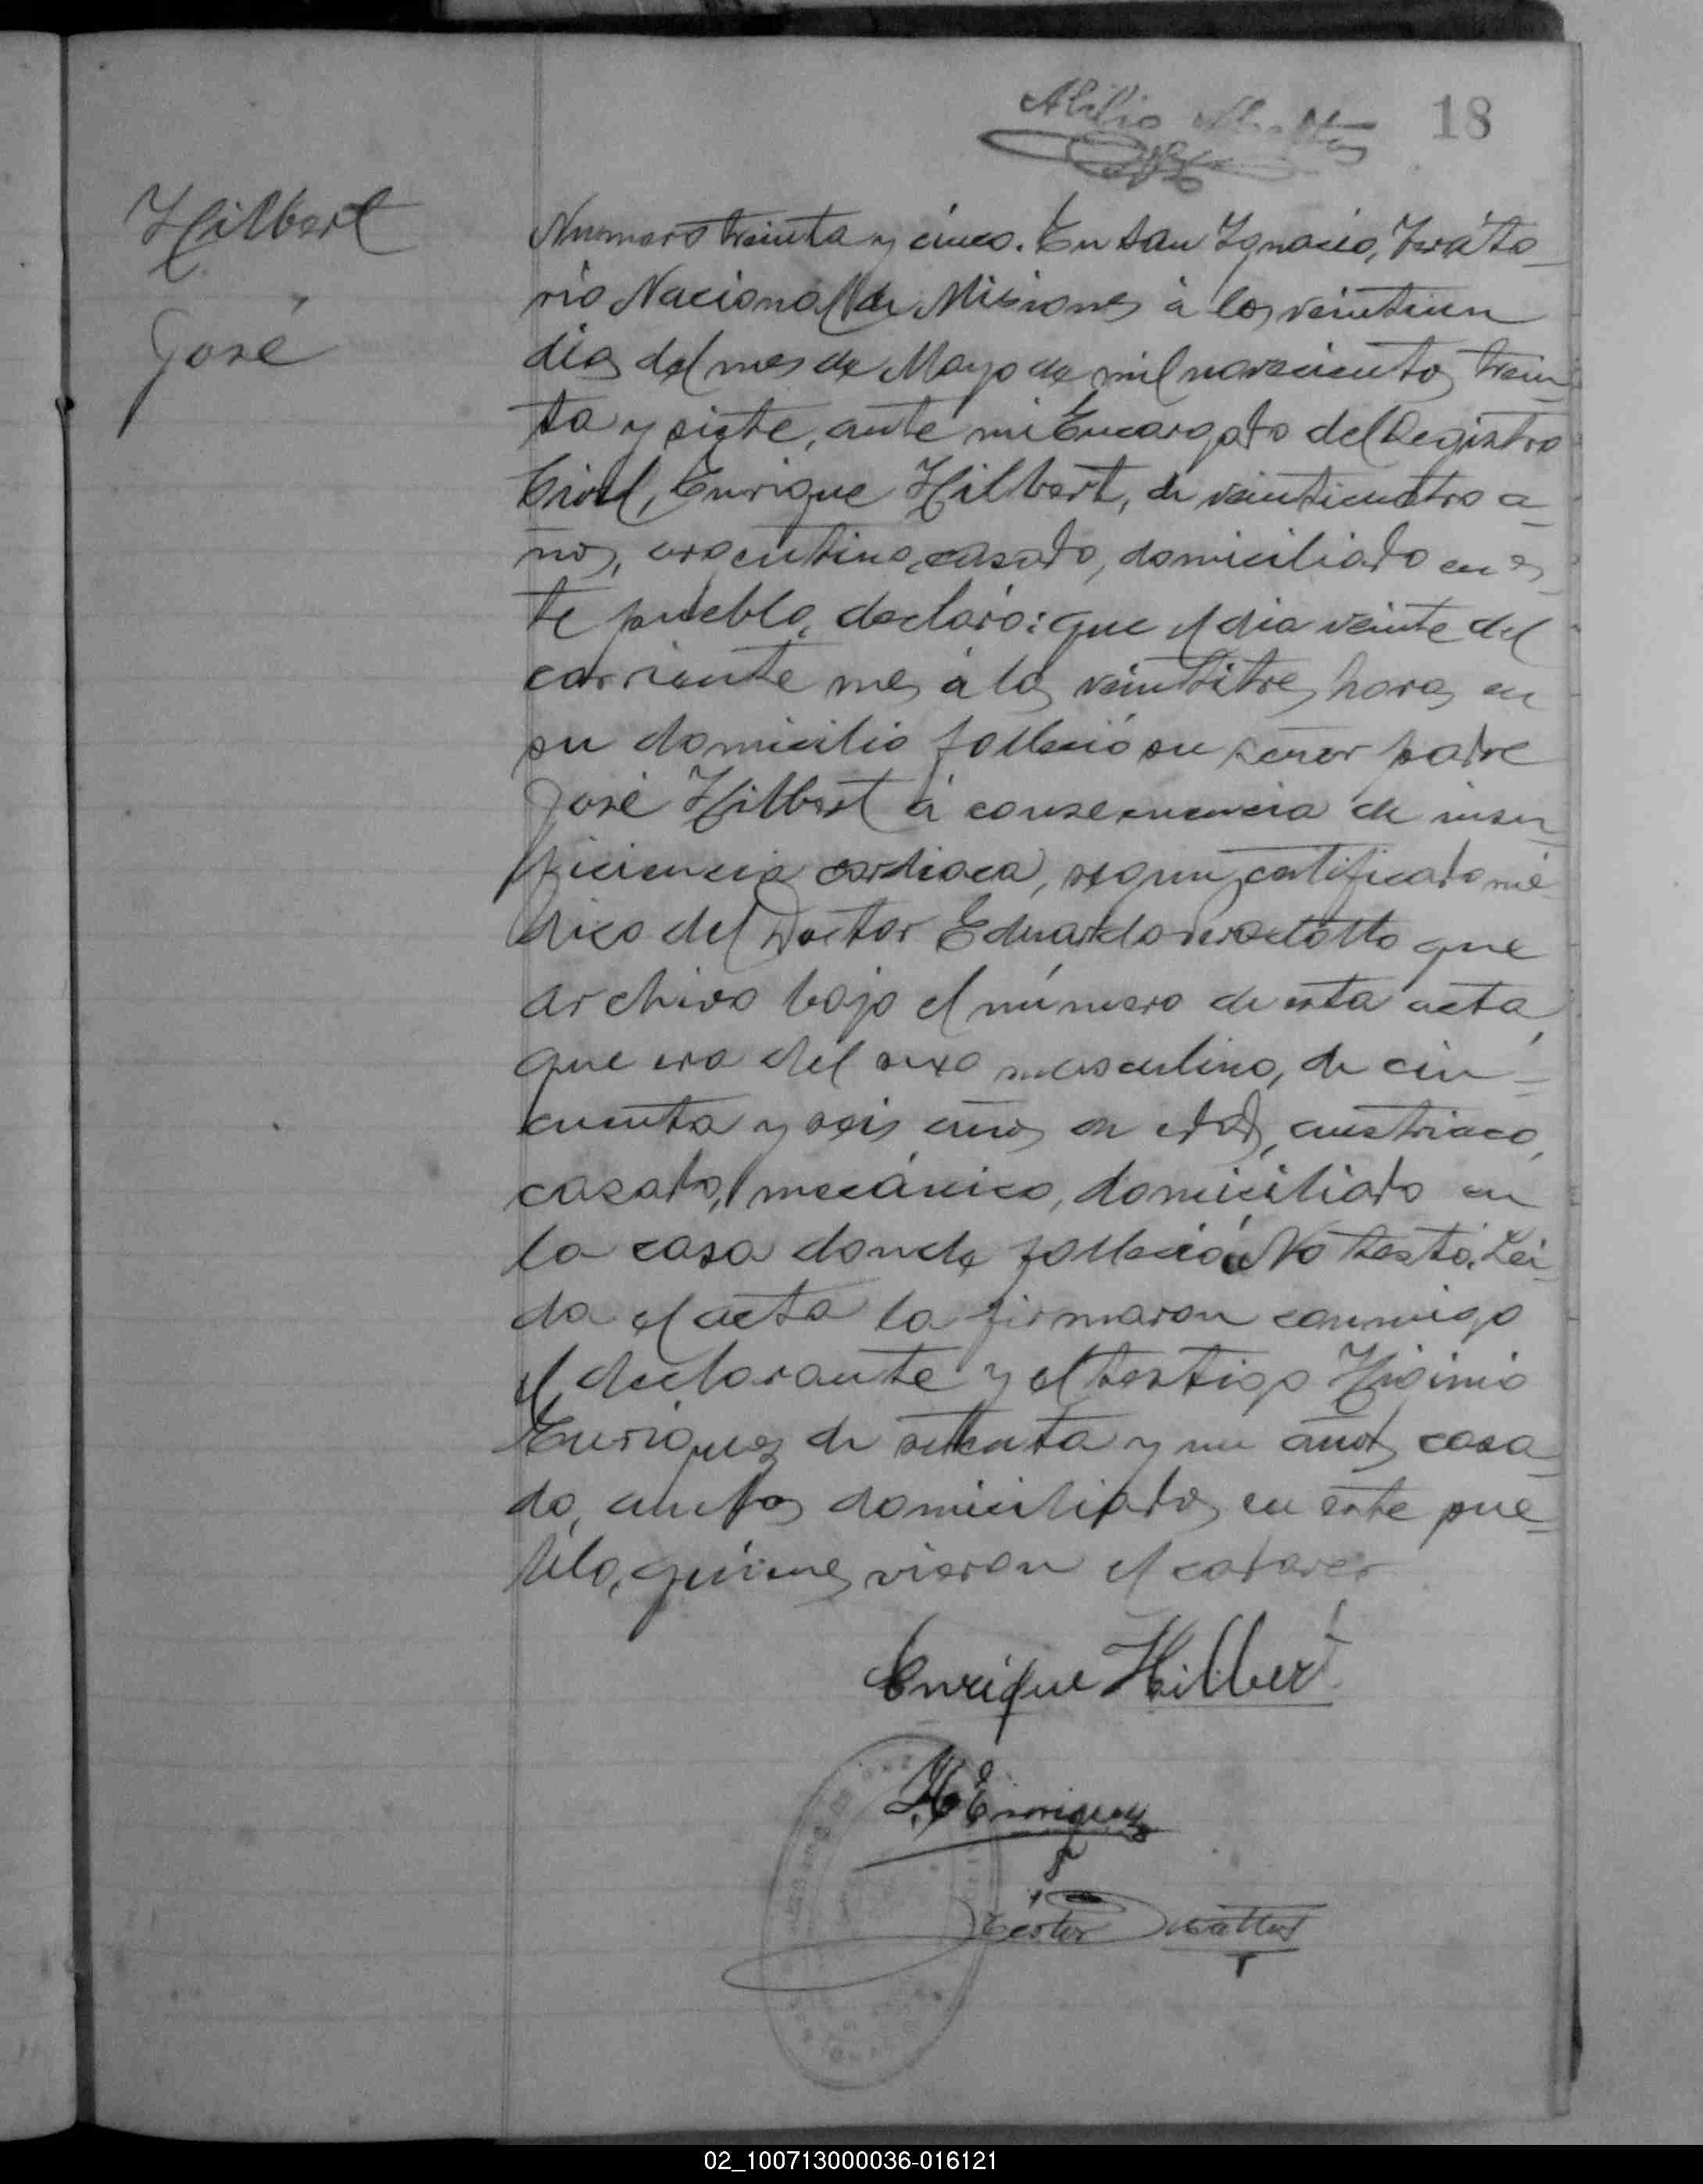 Abilio
18
Hilbert
José
Numero treinta y cinco. En San Ignacio, Territo-
rio Nacional de Misiones á los veintiun
dias del mes de Mayo de mil novecientos trein-
ta y siete, ante mi Encargado del Registro
Civil, Enrique Hilbert, de veinticuatro a-
ños, argentino, casado, domiciliado en es-
te pueblo, declaró: que el dia veinte del
corriente mes á las veintitres horas en
su domicilio falleció su señor padre
José Hilbert á consecuencia de insu-
ficiencia cardiaca, segun certificado mé-
dico del Doctor Eduardo que
archivo bajo el número de esta acta,
que era del sexo masculino, de cin-
cuenta y seis años de edad, austriaco,
casado, mecánico, domiciliado en
la casa donde falleció. No testó. Lei-
da el acta la firmaron conmigo
el declarante y el testigo Higinio
Enriquez de setenta y un años, casa-
do, ambos domiciliados en este pue-
blo, quienes vieron el cadaver
Enrique Hilbert
H Enriquez